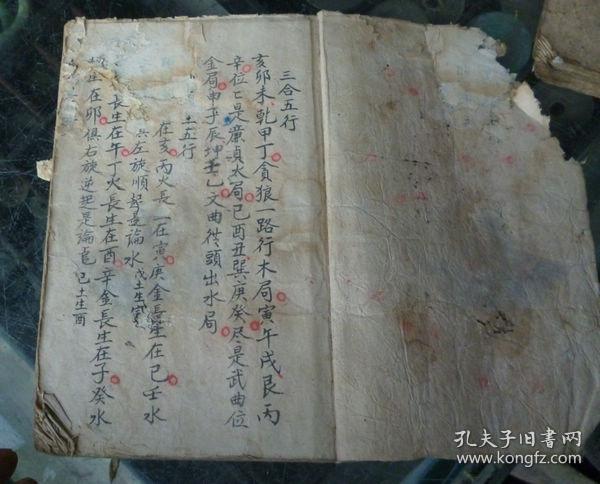 三合五行
亥卯未乾甲丁貪狼一路行木局寅午戌艮丙
辛位位是廉貞火局巳酉丑巽庚癸尽是武曲位
金局申子辰坤壬乙文曲從頭出水局
五行
在亥丙火長 在寅庚金長生在巳壬水
左旋順 是論水戊土生寅
長生在午丁火長生在酉辛金長生在子癸水
生在卯俱右旋逆 是論 己土生酉
孔夫子旧书网
www.kongfz.com